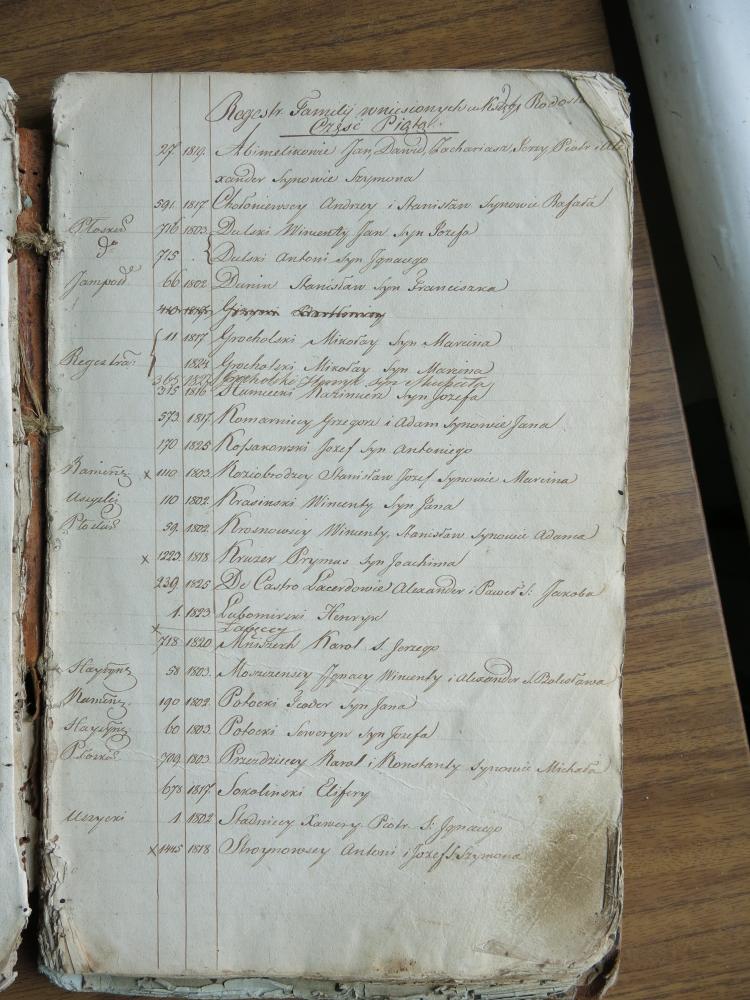 Regestr Familij wniesionych w Księgę
Część Piąta
27. 1819. Abimelikowie Jan, Dawid, Zachariasz, Jerzy, Piotr i Ale
xander Synowie Szymona
591. 1817 Chołoniewscy Andrzey i Stanisław Synowie Rafała
Płoskir. 716 1803. Dulski Wincenty Jan Syn Józefa
do 715 Dulski Antoni Syn Jgnacego
Jampol 66 1802 Dunin Stanisław Syn Franciszka
11 1817 Grocholski Mikołay Syn Marcina
1824 Grocholski Mikołay Syn Marcina
365 1827 Grocholski Henryk syn
315 1816 Kazimierz Syn Jozefa
573. 1817 Komarniccy Grzegorz i Adam Synowie Jana
170 1825 Kossakowski Jozef Syn Antoniego
Kamień: x 1110 1803. Koziobrodzcy Stanisław Jozef Synowie Marcina
110 1802. Krasinski Wincenty Syn Jana
59. 1802. Krosnowscy Wincenty, Stanisław Synowie Adama
x 1223. 1818 Kruzer Prymus Syn Joachima
239. 1825 De Castro Lacerdowie Alexander i Paweł S: Jakoba
1. 1823 Lubomirski Henryk
x Łabęccy
718 1820 Mniszech Karol S. Jerzego
Haysyn: 58 1803. Moszczenscy Jgnacy Wincenty i Alexander S. Bolesława
Kamień: 190 1802. Potocki Teodor Syn Jana
Haysyn: 60 1803 Potocki Seweryn Syn Jozefa
709. 1803 Przezdzieccy Karol i Konstanty Synowie Michała
678 1817 Sokolinski Elifery
Uszycki 1 1802 Stadniccy Xawery Piotr S: Jgnacego
x 1445 1818 Stroynowscy Antoni i Jozef S. Szymona